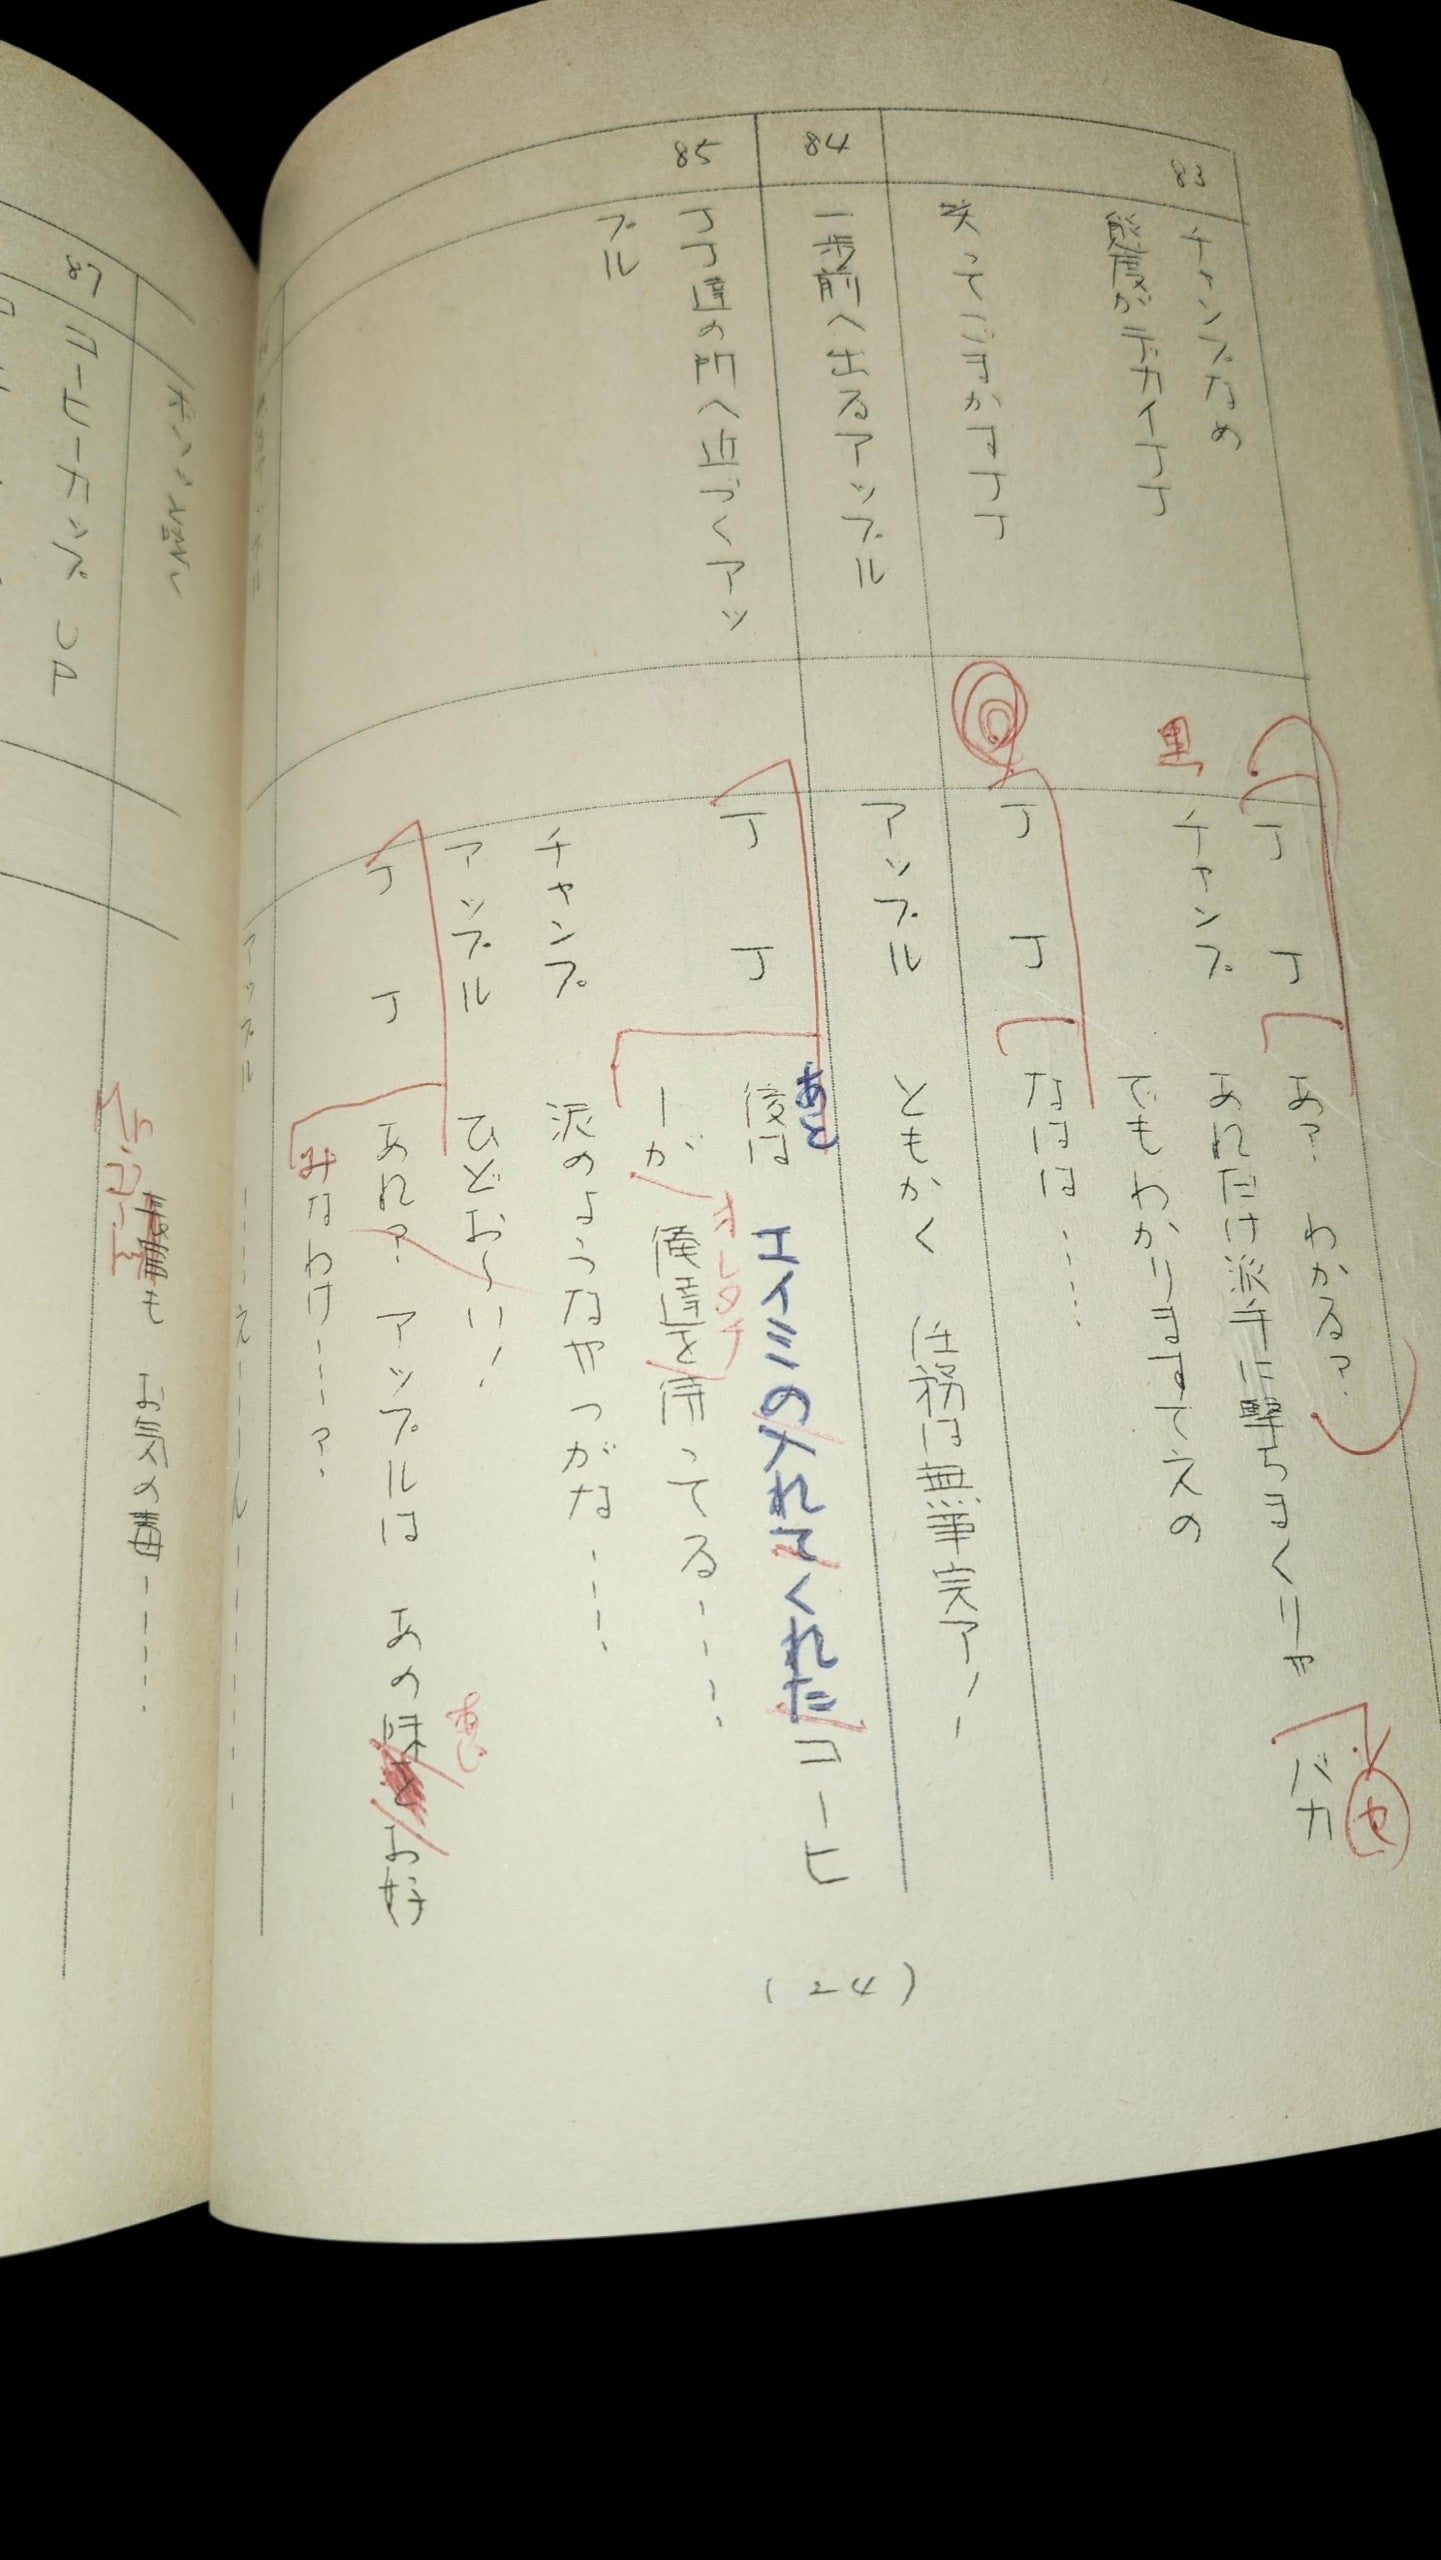 83
チャンプなめ
態度がデカイJJ
笑ってごまかすJJ
84
一歩前へ出るアップル
85
JJ達の所へ近づくアッ
プル
JJ あ? わかる? バカ
セ
黒
チャンプ あれだけ派手に撃ちまくりゃ
でもわかりますてえの
JJ なはは……
アップル ともかく 任務は無事完了!
JJ 後は エイミの入れてくれたコーヒ
あと
ーが 俺達を待ってる……
オレタチ
チャンプ 泥のようなやつがな……
アップル ひどお〜い!
JJ あれ? アップルは あの味とお好
あじ
みなわけ……?
(24)
アップル
も お気の毒……
87
コーヒーカップ UP